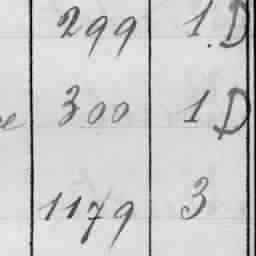 299 1.D
300 1.D
1179 3